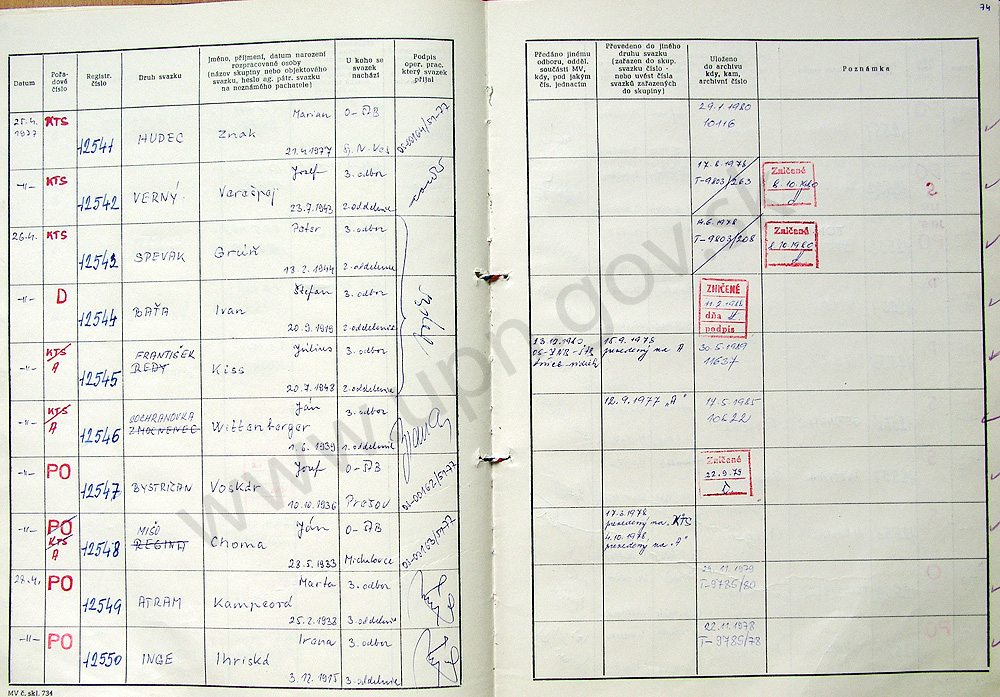 74
Datum
Pořadové číslo
Registr. číslo
Druh svazku
Jméno, příjmení, datum narození rozpracované osoby (název skupiny nebo objektového svazku, heslo ag. pátr. svazku na neznámého pachatele)
U koho se svazek nachází
Podpis oper. prac. který svazek přijal
Předáno jinému odboru, odděl. součásti MV, kdy, pod jakým čís. jednacím
Převedeno do jiného druhu svazku (zařazen do skup. svazku číslo - nebo uvést čísla svazků zařazených do skupiny)
Uloženo do archivu kdy, kam, archivní číslo
Poznámka
25.4. 1977 KTS 12541 HUDEC Marian Znak 21.4.1977 O-ŠtB DS-00104/51-77
29.1.1980
10116
-11- KTS 12542 VERNÝ Jozef Varašpaj 23.7.1943 3. odbor 2. oddelenie
17.8.1978
T-9803/263
Zničené
8.10.1980
26.4. KTS 12543 SPEVÁK Peter Grúň 13.2.1944 3. odbor 2. oddelenie
14.6.1978
T-9803/208
Zničené
8.10.1980
-11- D 12544 BAŤA Štefan Ivan 20.9.1919 3. odbor 2. oddelenie
ZNIČENÉ
dňa
podpis
-11- KTS A 12545 FRANTIŠEK REDY Július Kiss 20.7.1948 3. odbor 2. oddelenie
13.12.1980
15.9.1978
prevedený na A
30.5.1989
11637
-11- KTS A 12546 OCHRANOVKA ZMOCNENEC Ján Wittenberger 1.6.1939 3. odbor 1. oddelenie
12.9.1977 „A"
14.5.1985
10822
-11- PO 12547 BYSTRIČAN Jozef Voskár 10.10.1936 O-ŠtB Prešov DS-00102/51-77
Zničené
22.9.79
-11- PO KTS A 12548 MIŠO REGINA Ján Choma 28.5.1933 O-ŠtB Michalovce DS-00103/51-77
17.3.1978
prevedený na KTS
4.10.1978
prevedený na „A"
28.4. PO 12549 ATRAM Marta Kampeorá 25.2.1938 3. odbor 3. oddelenie
29.11.1979
T-9785/80
-11- PO 12550 INGE Irena Ihriská 3.12.1915 3. odbor 3. oddelenie
22.11.1978
T-9785/78
MV č. skl. 734
www.upn.gov.sk